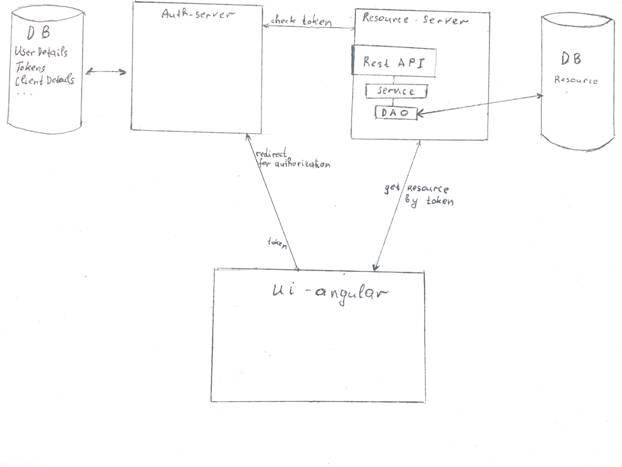 DB
UserDetails
Tokens
Client Details
...
Auth-server
check token
Resource-Server
Rest API
service
DAO
DB
Resource
redirect
for authorization
get resource
by token
token
Ui-angular